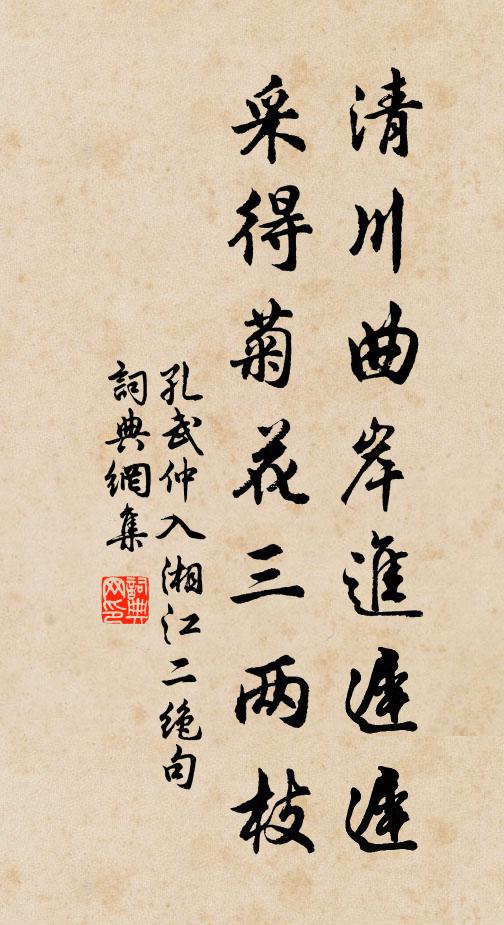 清川曲岸進遲遲
采得菊花三两枝
孔武仲入湘江二绝句
詞典網集
詞典網印